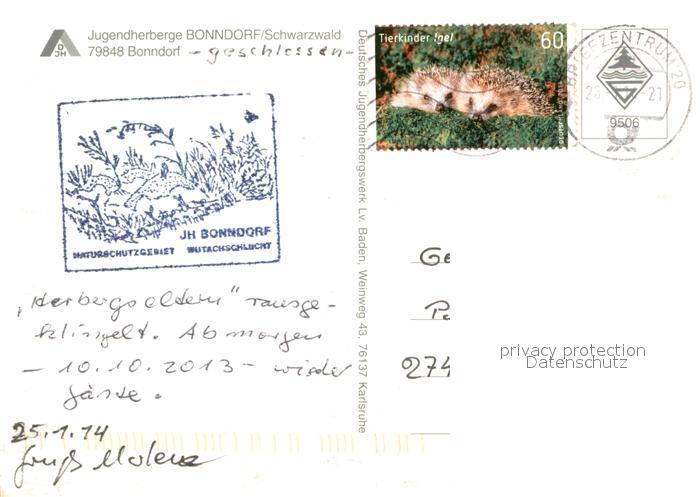 Jugendherberge BONNDORF/Schwarzwald
79848 Bonndorf - geschlossen -
DJH
Tierkinder Igel
60
BRIEFZENTRUM 20
21
9506
JH BONNDORF
NATURSCHUTZGEBIET WUTACHSCHLUCHT
Deutsches Jugendherbergswerk Lv. Baden, Weinweg 43, 76137 Karlsruhe
„Herbergseltern" rausge-
klingelt. Ab morgen
- 10.10.2013 - wieder
Gäste.
25.1.14
Gruß
Ge
274
privacy protection
Datenschutz